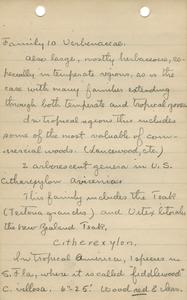 Family 10. Verbenaceae.
Also large, mostly herbaceous, es-
pecially in temperate regions, as is the
case with many families extending
through both temperate and tropical
In tropical regions this includes
some of the most valuable of com-
mercial woods. (Lancewood, etc.)
2 arborescent genera in U.S.
Citharexylon Avicennia
This family includes the Teak
(Tectona grandis) and Vitex litoralis
the New Zealand Teak.
Citharexylon.
In tropical America, 1 species in
S. Fla, where it is called fiddlewood
C. villosa. 6"-25'. Wood red & clear.